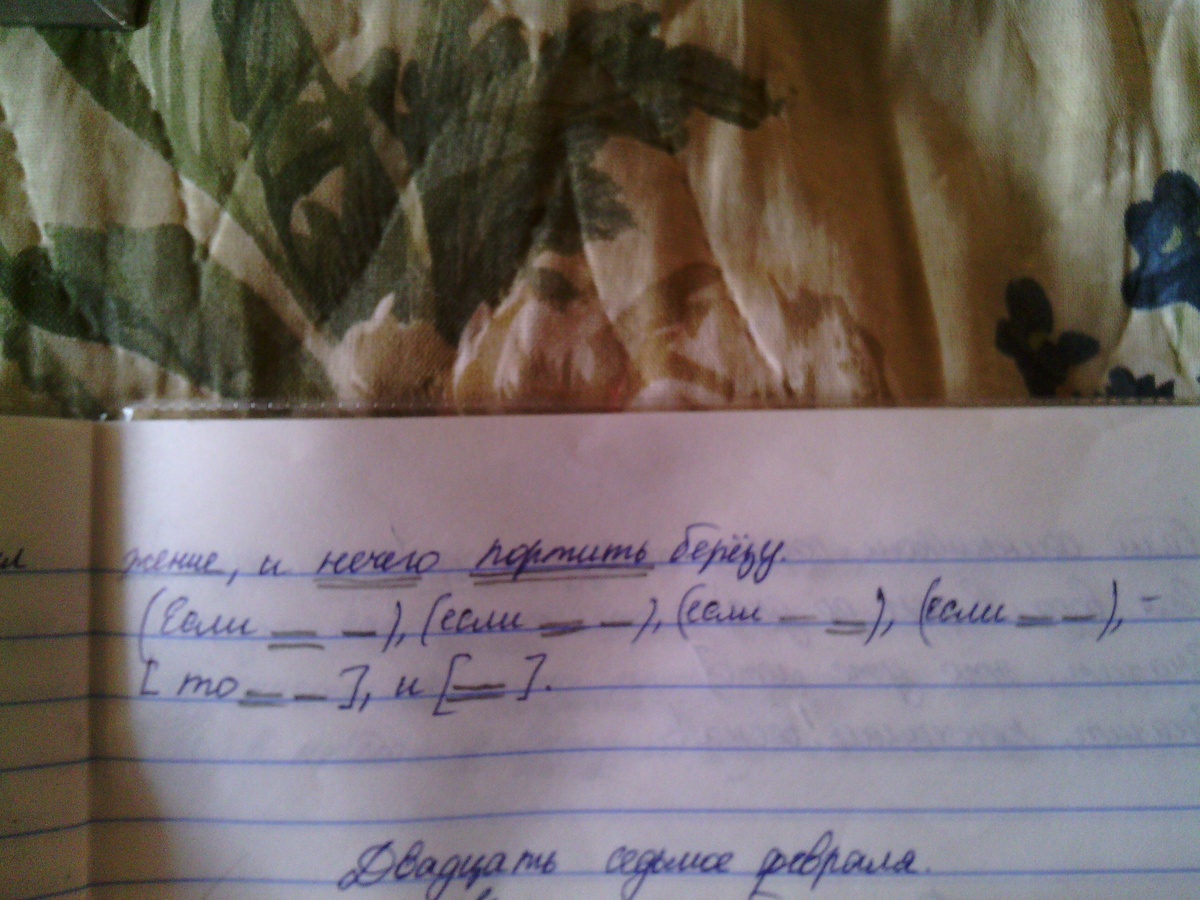 жение, и нечего портить берёзу.
(Если __ __), (если __ __), (если __ __), (если __ __), -
[то __ __], и [__].
Двадцать седьмое февраля.